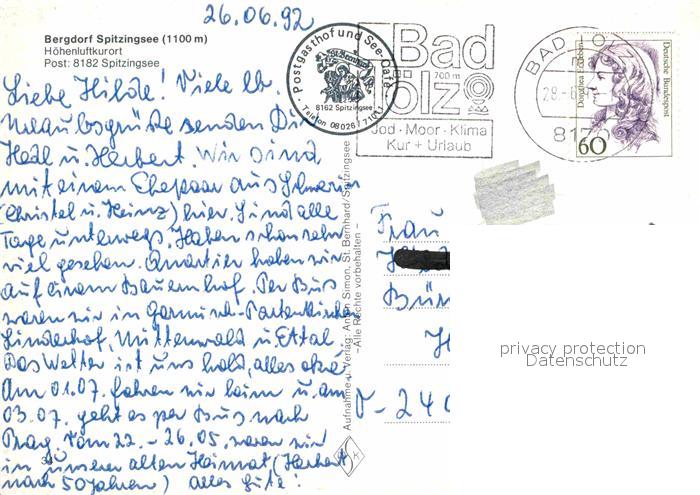 26.06.92
Bergdorf Spitzingsee (1100 m)
Höhenluftkurort
Post: 8182 Spitzingsee
Postgasthof und See-Café
8162 Spitzingsee
Telefon 08026/71011
Bad
Tölz
700 m
Jod · Moor · Klima
Kur + Urlaub
BAD TÖL
28.-6
8170
Dorothea Erxleben
Deutsche Bundespost
60
Liebe Hilde! Viele lb.
Urlaubsgrüße senden Dir
Hedl u. Herbert. Wir sind
mit einem Ehepaar aus Schwerin
(Christel u. Heinz) hier. Sind alle
Tage unterwegs. Haben schon sehr
viel gesehen. Quartier haben wir
auf einem Bauernhof. Per Bus
waren wir in Garmisch-Partenkirchen
Linderhof, Mittenwald u. Ettal.
Das Wetter ist uns hold, alles okay
Am 01.07. fahren wir heim u. am
03.07. geht es per Bus nach
Prag. Vom 22. - 26.05. waren wir
in unserer alten Heimat (Herbert
nach 50 Jahren) alles Gute!
Aufnahme u. Verlag: Anton Simon, St. Bernhard/Spitzingsee
-Alle Rechte vorbehalten-
Frau
Bün
H
D-240
privacy protection
Datenschutz